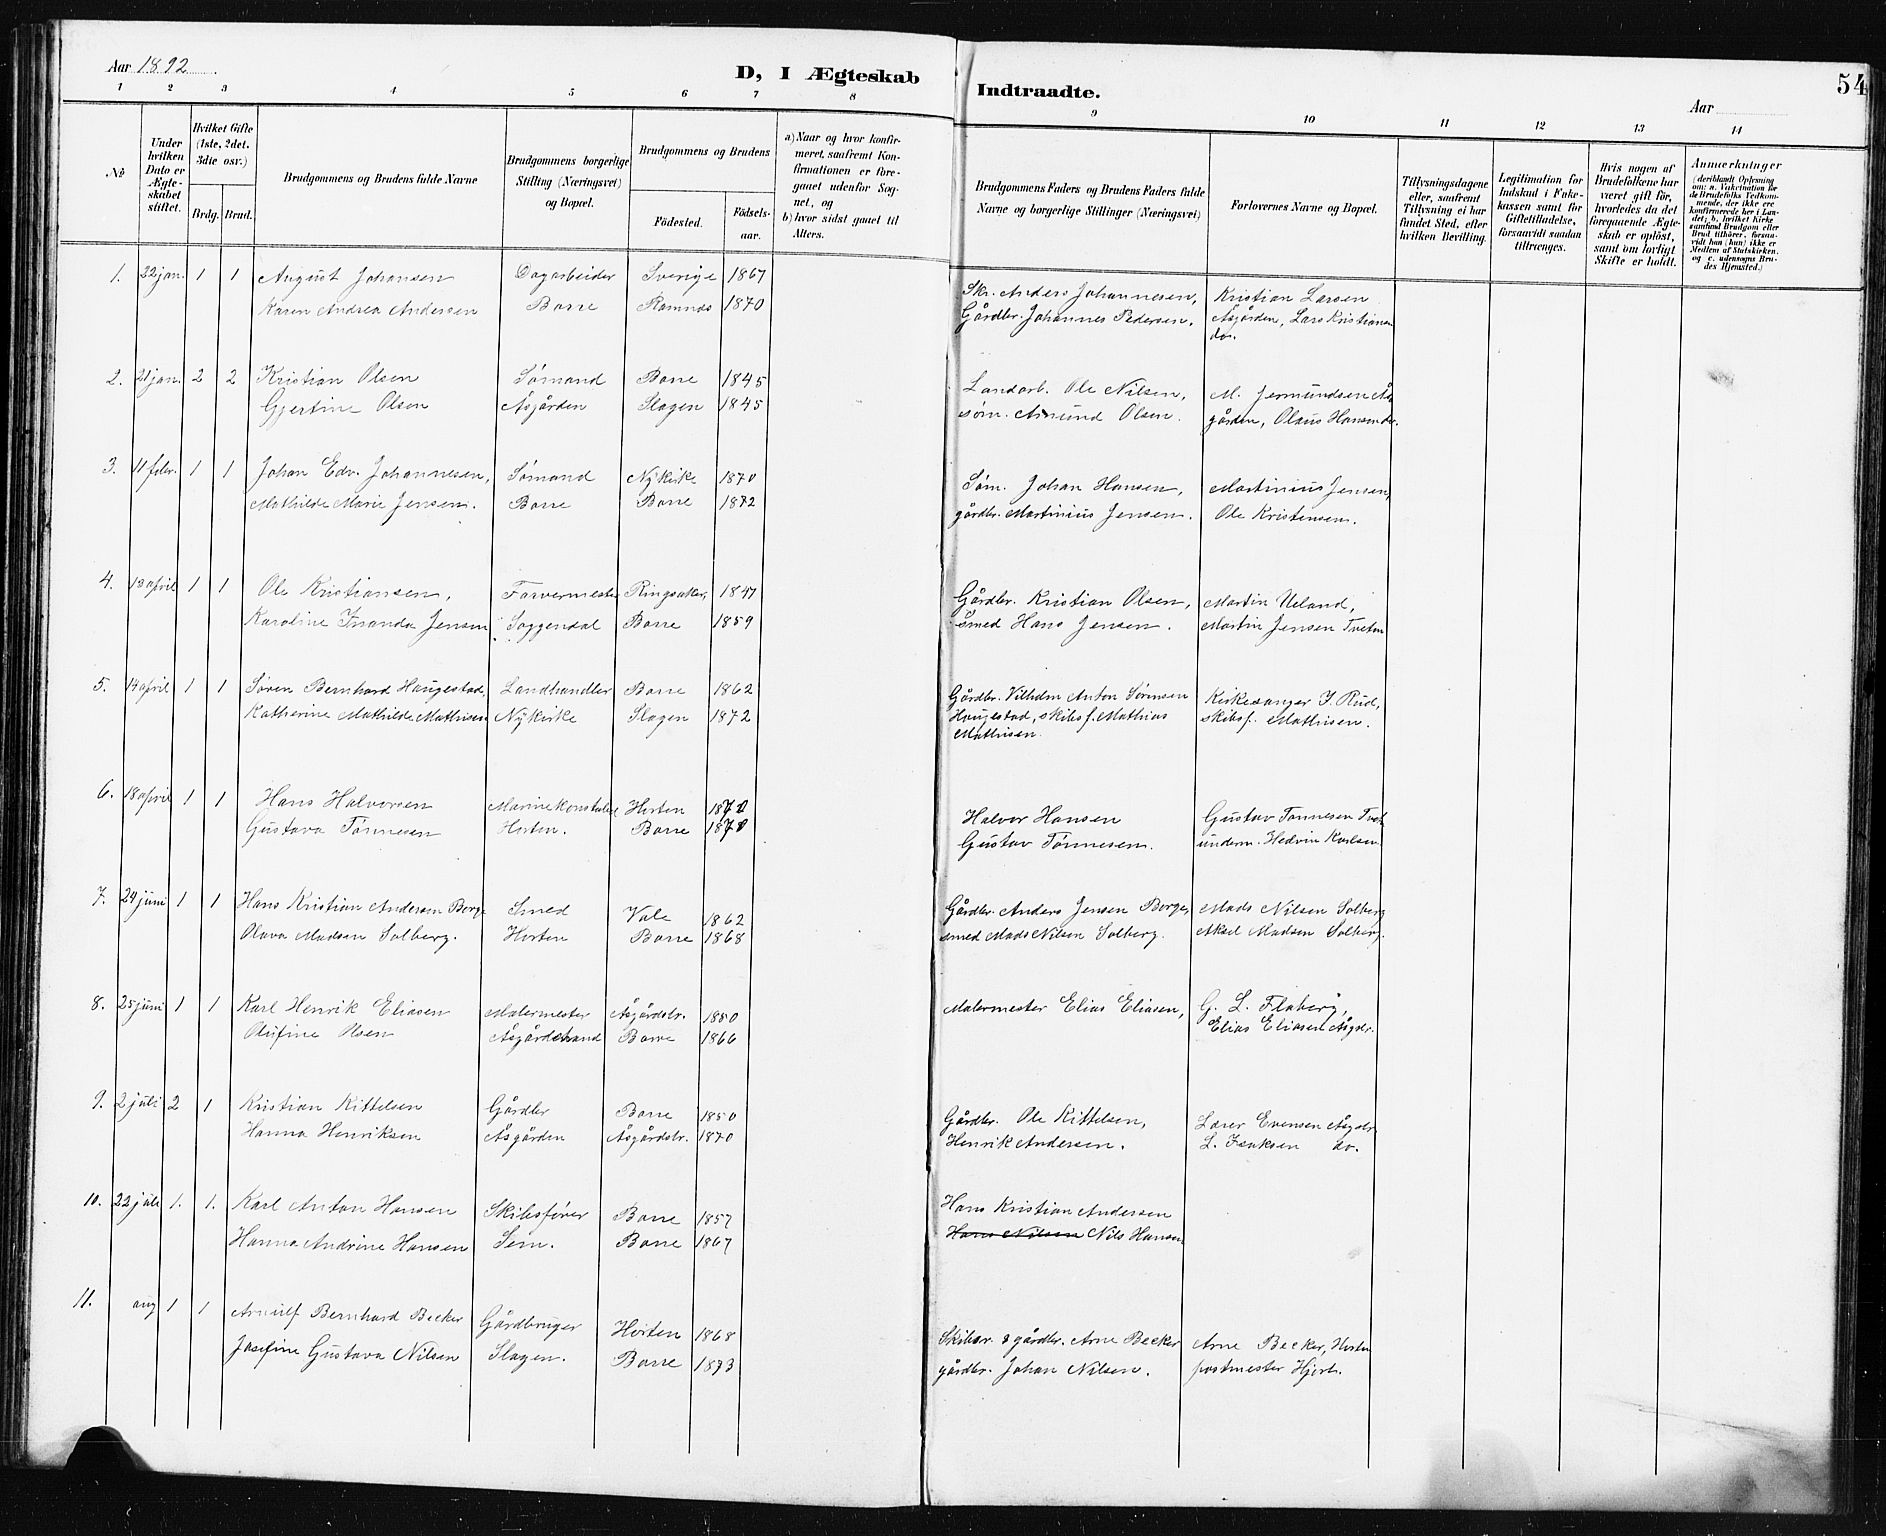 Aar 1892
D, I Ægteskab Indtraadte.
Aar
54
1 2 3 4 5 6 7 8 9 10 11 12 13 14
№
Under hvilken Dato er Ægteskabet stiftet.
Hvilket Gifte (1ste, 2det, 3die osv.)
Brdg. Brud.
Brudgommens og Brudens fulde Navne
Brudgommens borgerlige Stilling (Næringsvei) og Bopæl.
Brudgommens og Brudens
Fødested. Fødselsaar.
a) Naar og hvor konfirmeret, saafremt Konfirmationen er foregaaet udenfor Sognet, og
b) hvor sidst gaaet til Alters.
Brudgommens Faders og Brudens Faders fulde Navne og borgerlige Stillinger (Næringsvei)
Forlovernes Navne og Bopæl.
Tillysningsdagene eller, saafremt Tillysning ei har fundet Sted, efter hvilken Bevilling.
Legitimation for Indskud i Enkekassen samt for Giftetilladelse, forsaavidt saadan tiltrænges.
Hvis nogen af Brudefolkene har været gift før, hvorledes da det foregaaende Ægteskab er opløst, samt om lovligt Skifte er holdt.
Anmærkninger (deriblandt Oplysning om: a. Vakcination for de Brudefolks Vedkommende, der ikke ere konfirmerede her i Landet; b. hvilket Kirkesamfund Brudgom eller Brud tilhører, forsaavidt han (hun) ikke er Medlem af Statskirken, og c. udensogns Brudes Hjemsted.)
1. 22 jan. 1 1 August Johansen Dagarbeider Sverige 1867 Skr. Anders Johannesen, Kristian Larsen
Karen Andrea Andersen Borre Ramnæs 1870 Gårdbr. Johannes Pedersen. Åsgården, Lars Kristiansen
do.
2. 21 jan. 2 2 Kristian Olsen Sømand Borre 1845 Landarb. Ole Nilsen, M. Jermundsen Ås-
Gjertine Olsen Åsgården Slagen 1845 søm. Amund Olsen. gården, Olaus Hansen do.
3. 11 febr. 1 1 Johan Edv. Johannesen, Sømand Nykirke 1870 Søm. Johan Hansen, Martinius Jensen,
Mathilde Marie Jensen. Borre Borre 1872 gårdbr. Martinius Jensen. Ole Kristensen.
4. 13 april 1 1 Ole Kristiansen, Farvermester Ringsaker, 1847 Gårdbr. Kristian Olsen, Martin Ueland,
Karoline Amanda Jensen Soggendal Borre 1859 Smed Hans Jensen. Martin Jensen Tveten
5. 14 april 1 1 Søren Bernhard Haugestad, Landhandler Borre 1862 Gårdbr. Vilhelm Anton Sørensen Kirkesanger I. Rud,
Katherine Mathilde Mathisen Nykirke Slagen 1872 Haugestad, skibsf. Mathias skibsf. Mathisen.
Mathisen.
6. 18 april 1 1 Hans Halvorsen Marinekonstabel Horten 1871 Halvor Hansen Gustav Tønnesen Tvet.
Gustava Tønnesen Horten. Borre 1871 Gustav Tønnesen. underm. Hedvin Karlsen
7. 24 juni 1 1 Hans Kristian Andersen Borge Smed Vale 1862 Gårdbr. Anders Jensen Borge, Mads Nilsen Solberg
Olava Madsen Solberg. Horten Borre 1868 smed Mads Nilsen Solberg. Aksel Madsen Solberg.
8. 25 juni 1 1 Karl Henrik Eliasen Malermester Åsgårdstr. 1880 Malermester Elias Eliasen, G. L. Flaberg,
Olufine Olsen Åsgårdstrand Borre 1866 Elias Eliasen Åsgstr.
9. 2 juli 2 1 Kristian Kittelsen Gårdbr Borre 1850 Gårdbr. Ole Kittelsen, Lærer Evensen Åsgstr
Hanna Henriksen Åsgården Åsgårdstr. 1870 Henrik Andersen. L. Isaksen do.
10. 22 juli 1. 1. Karl Anton Hansen Skibsfører Borre 1857 Hans Kristian Andersen
Hanna Andrine Hansen Sem. Borre 1867 Hans Nilsen Nils Hansen
11. aug 1 1 Arnulf Bernhard Becker Gårdbruger Horten 1868 Skibsr. & gårdbr. Arne Becker Arne Becker, Horten
Josefine Gustava Nilsen Slagen. Borre 1873 gårdbr. Johan Nilsen. postmester Hjort.